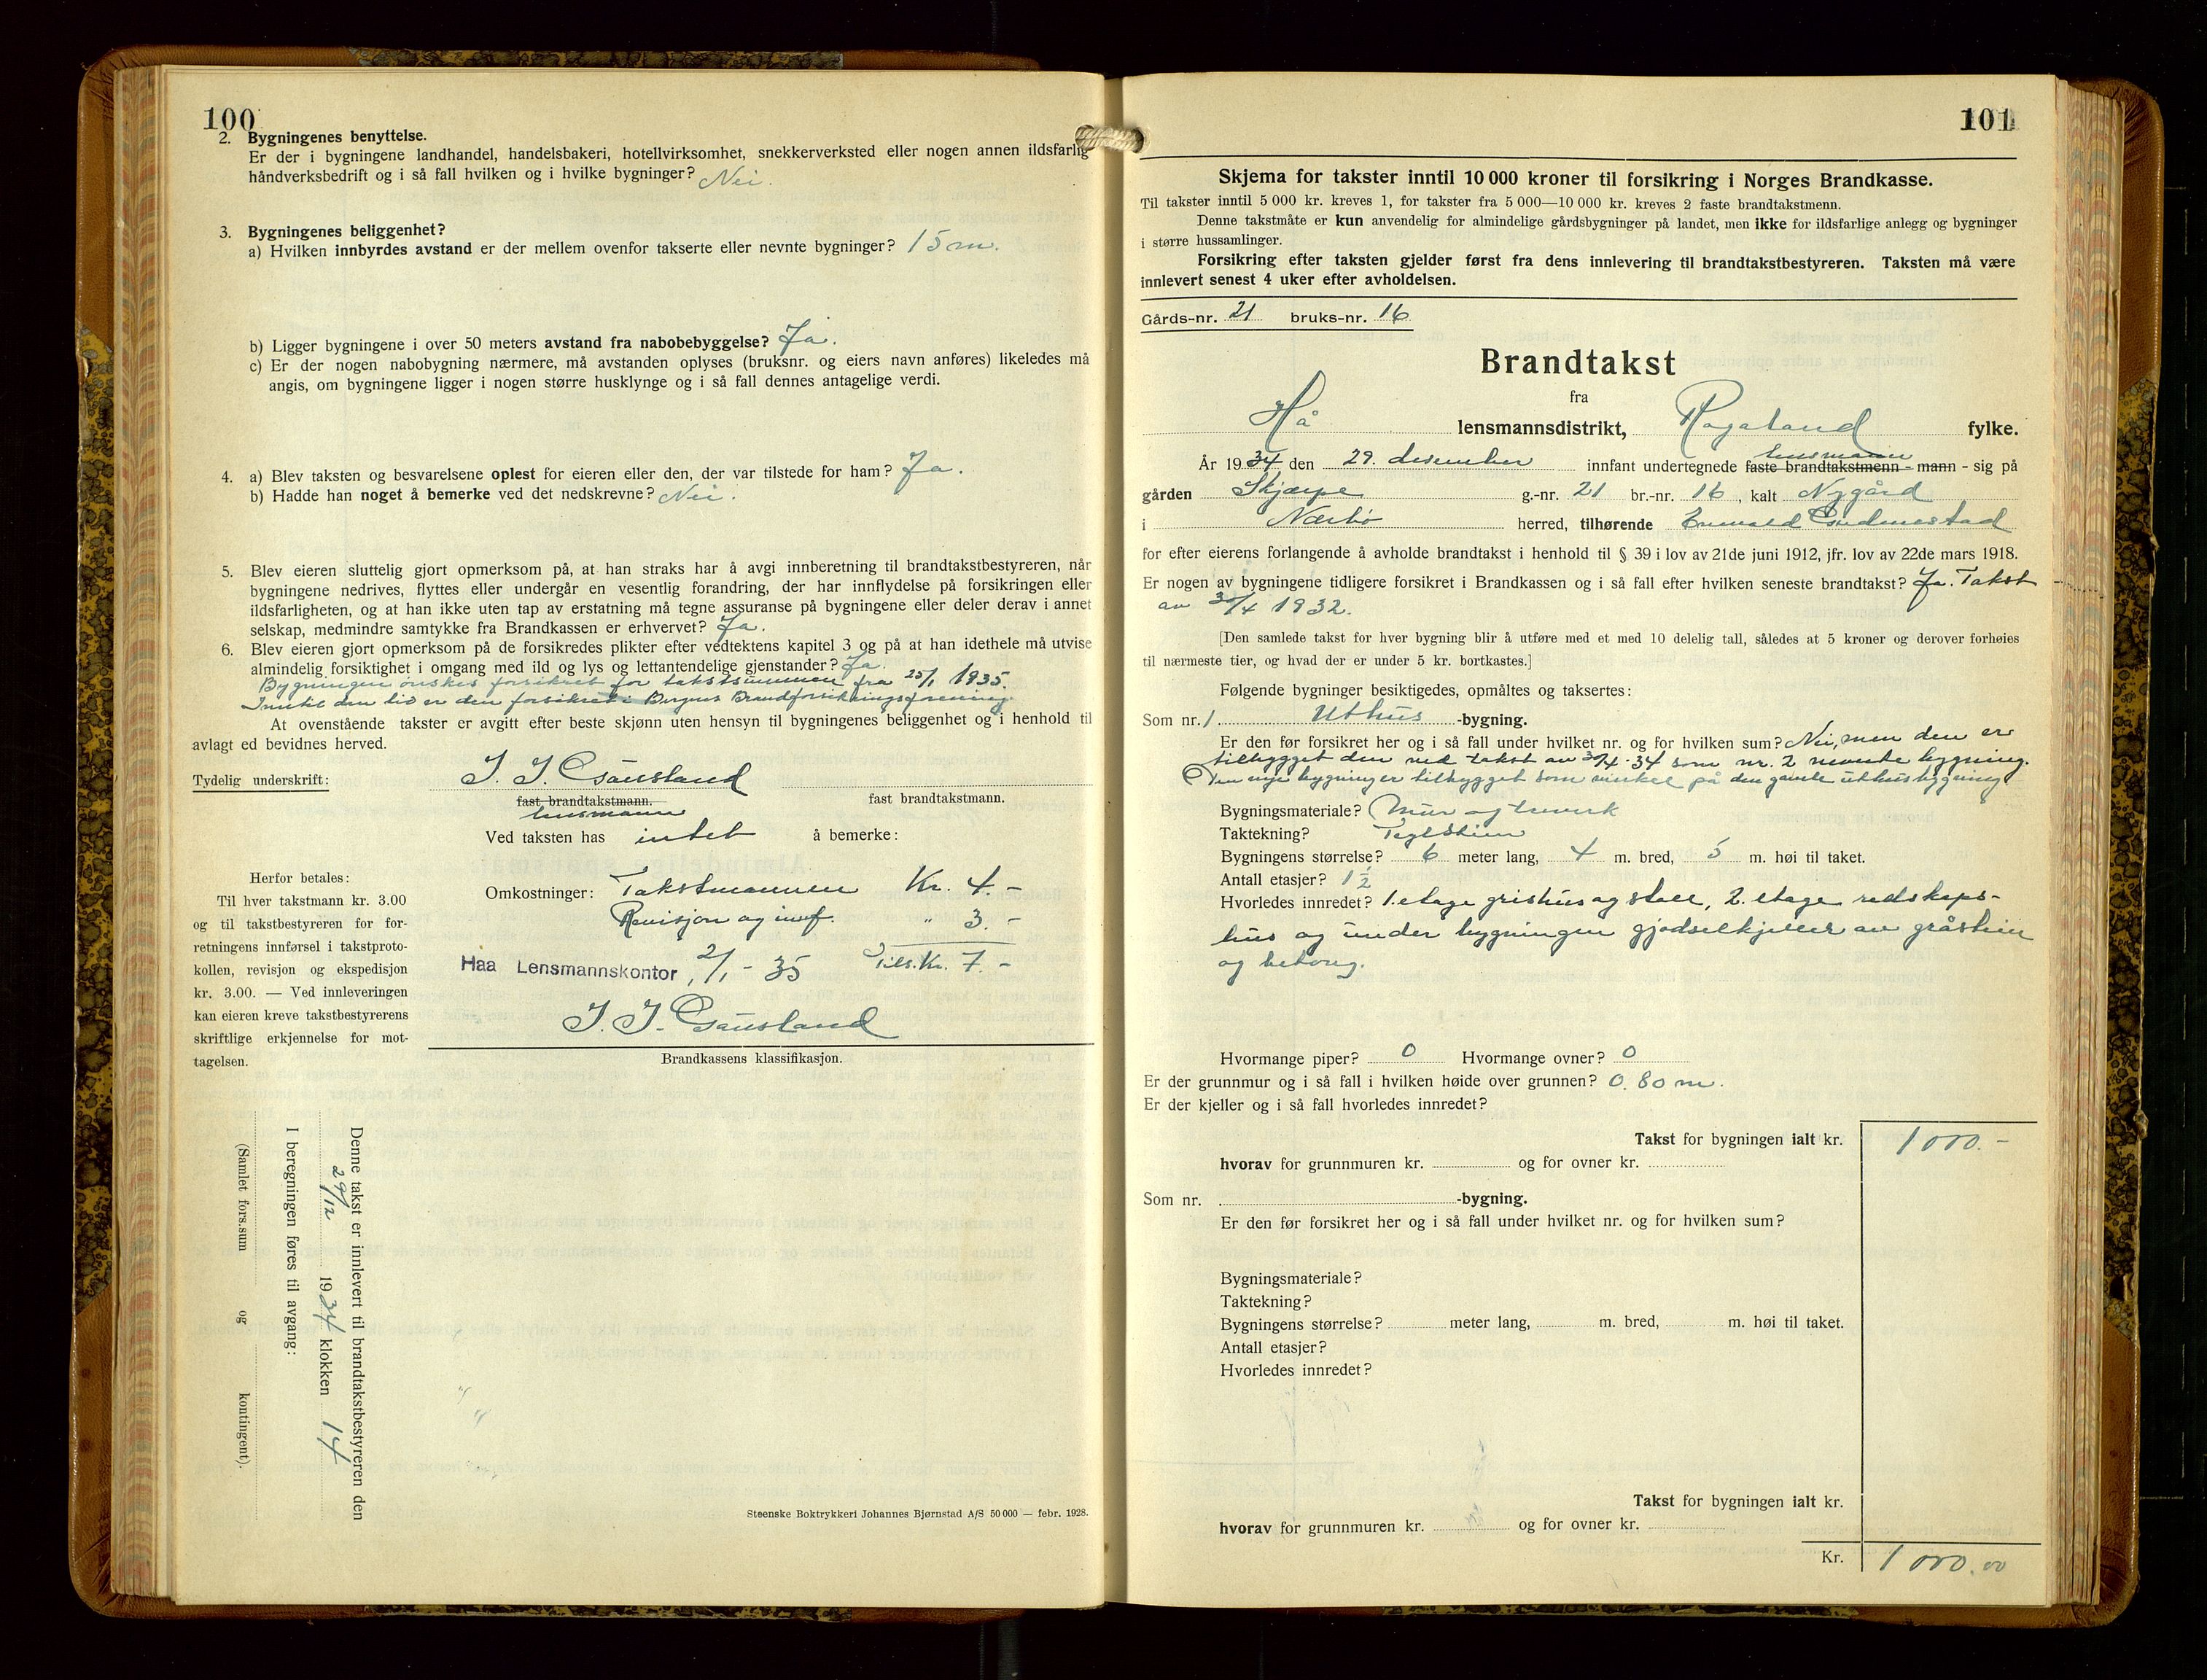 100
2. Bygningenes benyttelse.
Er der i bygningene landhandel, handelsbakeri, hotellvirksomhet, snekkerverksted eller nogen annen ildsfarlig
håndverksbedrift og i så fall hvilken og i hvilke bygninger? Nei.
3. Bygningenes beliggenhet?
a) Hvilken innbyrdes avstand er der mellem ovenfor takserte eller nevnte bygninger? 15 m.
b) Ligger bygningene i over 50 meters avstand fra nabobebyggelse? Ja.
c) Er der nogen nabobygning nærmere, må avstanden oplyses (bruksnr. og eiers navn anføres) likeledes må
angis, om bygningene ligger i nogen større husklynge og i så fall dennes antagelige verdi.
4. a) Blev taksten og besvarelsene oplest for eieren eller den, der var tilstede for ham? Ja.
b) Hadde han noget å bemerke ved det nedskrevne? Nei.
5. Blev eieren sluttelig gjort opmerksom på, at han straks har å avgi innberetning til brandtakstbestyreren, når
bygningene nedrives, flyttes eller undergår en vesentlig forandring, der har innflydelse på forsikringen eller
ildsfarligheten, og at han ikke uten tap av erstatning må tegne assuranse på bygningene eller deler derav i annet
selskap, medmindre samtykke fra Brandkassen er erhvervet? Ja.
6. Blev eieren gjort opmerksom på de forsikredes plikter efter vedtektens kapitel 3 og på at han idethele må utvise
almindelig forsiktighet i omgang med ild og lys og lettantendelige gjenstander? Ja.
Bygningen ønskes forsikret for takstsummen fra 25/1 1935.
Inntil den tid er den forsikret i Bergens Brandforsikringsforening.
At ovenstående takster er avgitt efter beste skjønn uten hensyn til bygningenes beliggenhet og i henhold til
avlagt ed bevidnes herved.
Tydelig underskrift: J. J. Gausland
fast brandtakstmann. fast brandtakstmann.
lensmann
Ved taksten has intet å bemerke:
Omkostninger: Takstmannen Kr. 4.-
Revisjon og innf. " 3.-
Haa Lensmannskontor, 2/1 - 35 Tils. Kr. 7.-
J. J. Gausland
Herfor betales:
Til hver takstmann kr. 3.00
og til takstbestyreren for for-
retningens innførsel i takstproto-
kollen, revisjon og ekspedisjon
kr. 3.00. — Ved innleveringen
kan eieren kreve takstbestyrerens
skriftlige erkjennelse for mot-
tagelsen.
Brandkassens klassifikasjon.
Denne takst er innlevert til brandtakstbestyreren den
29/12 1934 klokken 14
I beregningen føres til avgang:
(Samlet fors.sum og kontingent).
Steenske Boktrykkeri Johannes Bjørnstad A/S 50 000 — febr. 1928.
101
Skjema for takster inntil 10 000 kroner til forsikring i Norges Brandkasse.
Til takster inntil 5 000 kr. kreves 1, for takster fra 5 000—10 000 kr. kreves 2 faste brandtakstmenn.
Denne takstmåte er kun anvendelig for almindelige gårdsbygninger på landet, men ikke for ildsfarlige anlegg og bygninger
i større hussamlinger.
Forsikring efter taksten gjelder først fra dens innlevering til brandtakstbestyreren. Taksten må være
innlevert senest 4 uker efter avholdelsen.
Gårds-nr. 21 bruks-nr. 16
Brandtakst
fra
Hå lensmannsdistrikt, Rogaland fylke.
lensmann
År 1934 den 29. desember innfant undertegnede faste brandtakstmenn - mann - sig på
gården Skjærpe g.-nr. 21 br.-nr. 16, kalt Nygård
i Nærbø herred, tilhørende Enevald Gudmestad
for efter eierens forlangende å avholde brandtakst i henhold til § 39 i lov av 21de juni 1912, jfr. lov av 22de mars 1918.
Er nogen av bygningene tidligere forsikret i Brandkassen og i så fall efter hvilken seneste brandtakst? Ja. Takst
av 30/4 1932.
[Den samlede takst for hver bygning blir å utføre med et med 10 delelig tall, således at 5 kroner og derover forhøies
til nærmeste tier, og hvad der er under 5 kr. bortkastes.]
Følgende bygninger besiktigedes, opmåltes og taksertes:
Som nr. 1 Uthus -bygning.
Er den før forsikret her og i så fall under hvilket nr. og for hvilken sum? Nei, men den er
tilbygget den ved takst av 30/4-34 som nr. 2 nevnte bygning.
Den nye bygning er tilbygget som vinkel på den gamle uthusbygning.
Bygningsmateriale? Mur og treverk
Taktekning? Teglstein
Bygningens størrelse? 6 meter lang, 4 m. bred, 5 m. høi til taket.
Antall etasjer? 1 1/2
Hvorledes innredet? 1. etage grishus og stall, 2. etage redskaps-
hus og under bygningen gjødselkjeller av gråstein
og betong.
Hvormange piper? 0 Hvormange ovner? 0
Er der grunnmur og i så fall i hvilken høide over grunnen? 0.80 m.
Er der kjeller og i så fall hvorledes innredet?
Takst for bygningen ialt kr. 1000.-
hvorav for grunnmuren kr. og for ovner kr.
Som nr. -bygning.
Er den før forsikret her og i så fall under hvilket nr. og for hvilken sum?
Bygningsmateriale?
Taktekning?
Bygningens størrelse? meter lang, m. bred, m. høi til taket.
Antall etasjer?
Hvorledes innredet?
Takst for bygningen ialt kr.
hvorav for grunnmuren kr. og for ovner kr.
Kr. 1000.00